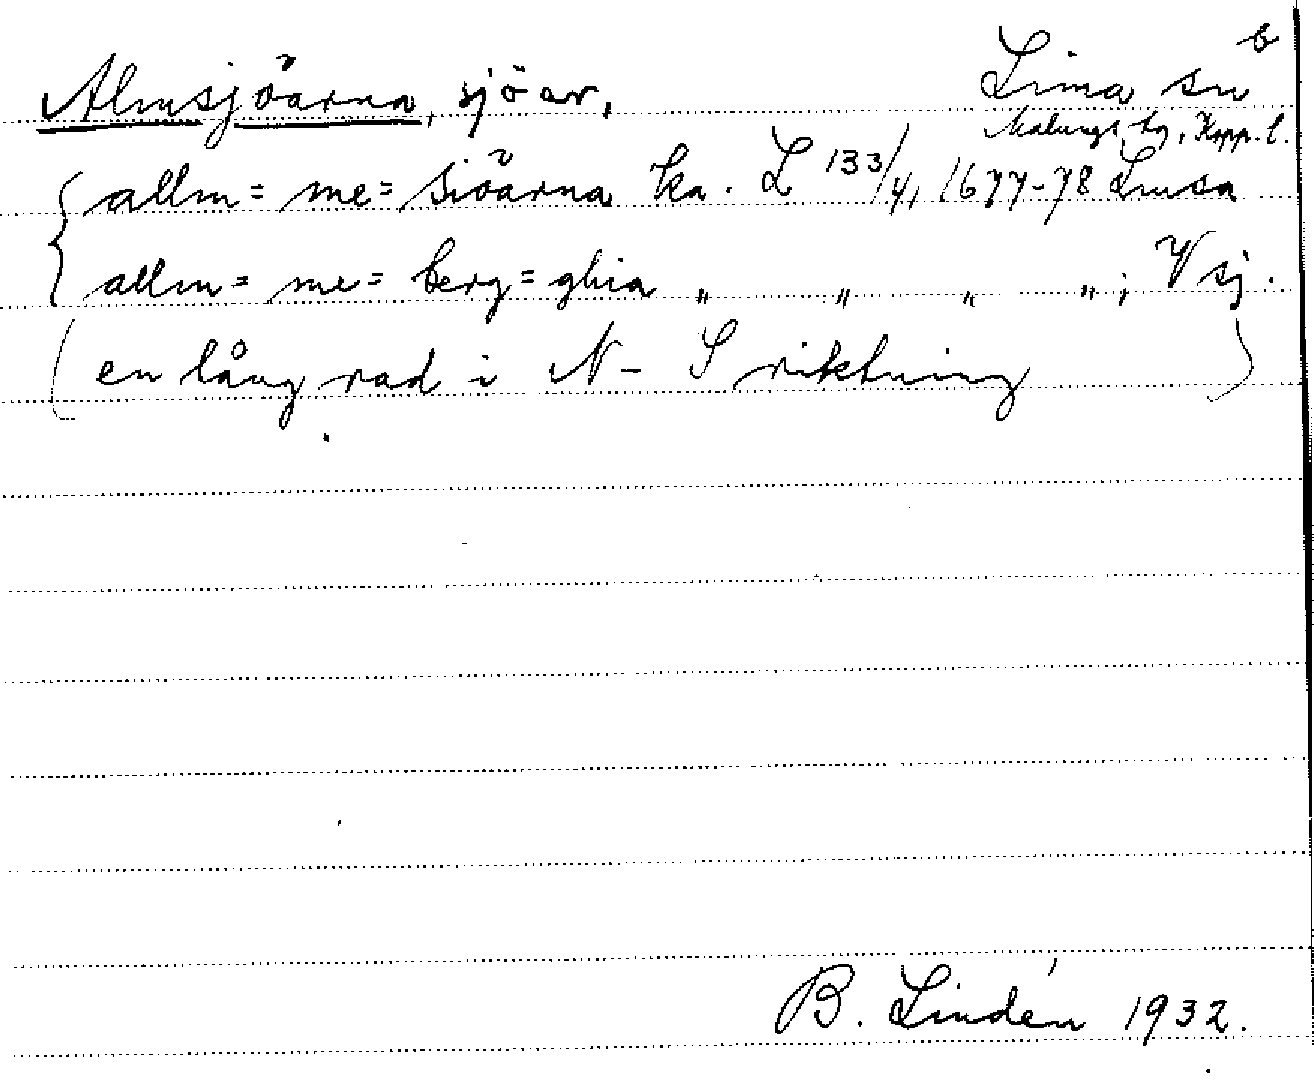 Almsjöarna, sjöar,
Lima sn b
Malungs tg, Kopp. l.
allm= me= siöarna ka. L 133/4, 1677-78
allm= me= berg= ghia " " " " ; V sj.
(en lång rad i N - S riktning)
B. Lindén 1932.